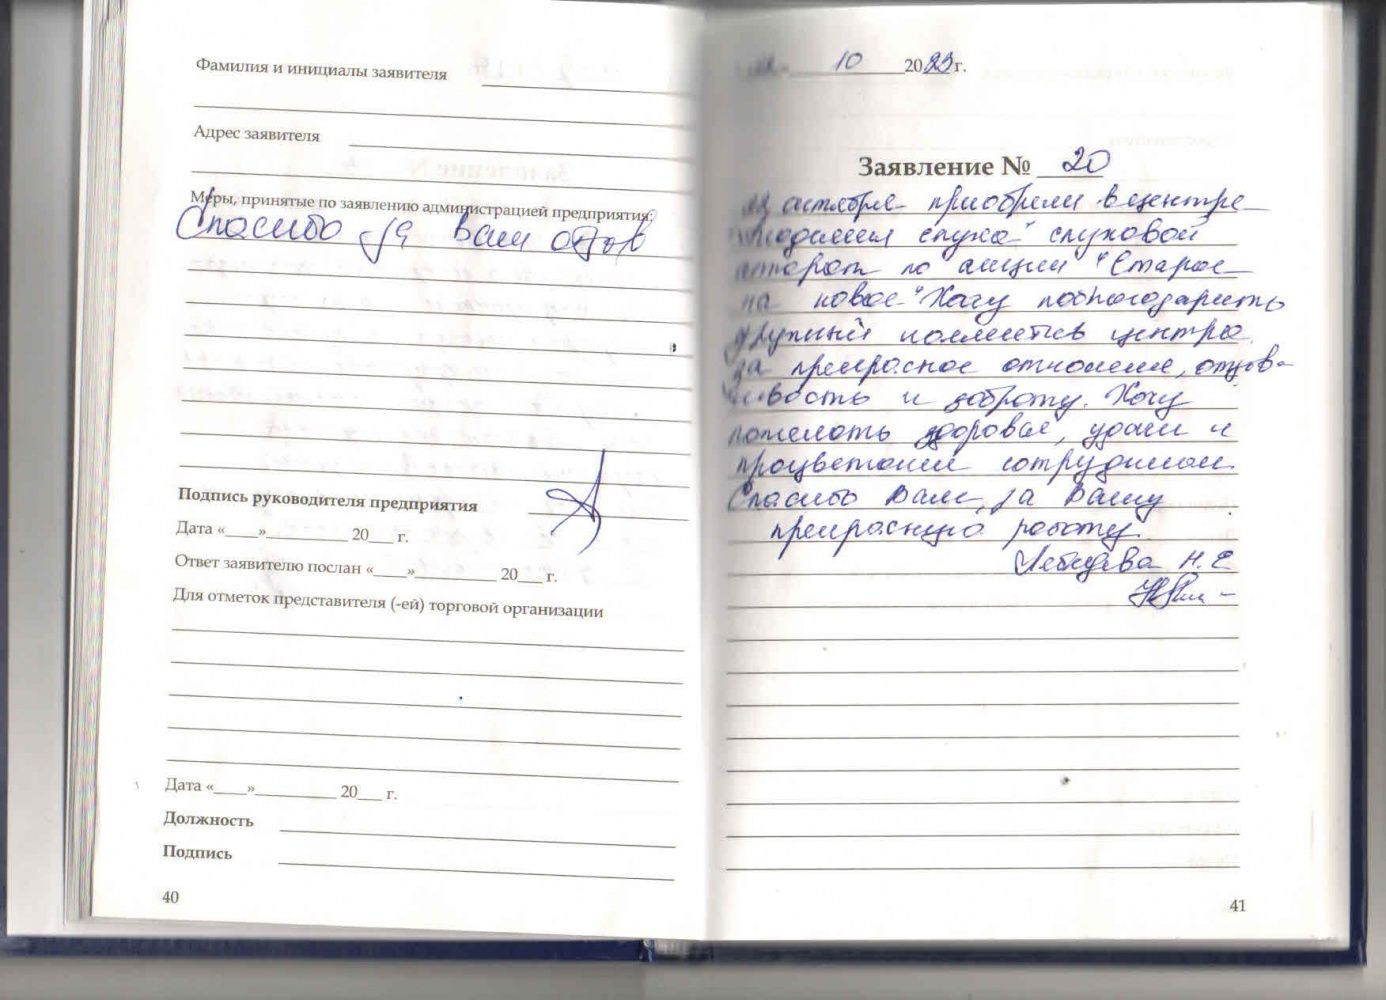 Фамилия и инициалы заявителя
Адрес заявителя
Меры, принятые по заявлению администрацией предприятия:
Спасибо за Ваш отзыв
Подпись руководителя предприятия
Дата «____»__________ 20___ г.
Ответ заявителю послан «____»__________ 20___ г.
Для отметок представителя (-ей) торговой организации
Дата «____»__________ 20___ г.
Должность
Подпись
40
10 2023 г.
Заявление № 20
октября приобрели в центре
слуха" слуховой
аппарат по акции "Старое
на новое" Хочу поблагодарить
дружный коллектив центра
за прекрасное отношение, отзыв-
чивость и доброту. Хочу
пожелать здоровья, удачи и
процветания сотрудникам.
Спасибо Вам за Вашу
прекрасную работу.
Лебедева Н.Е
41